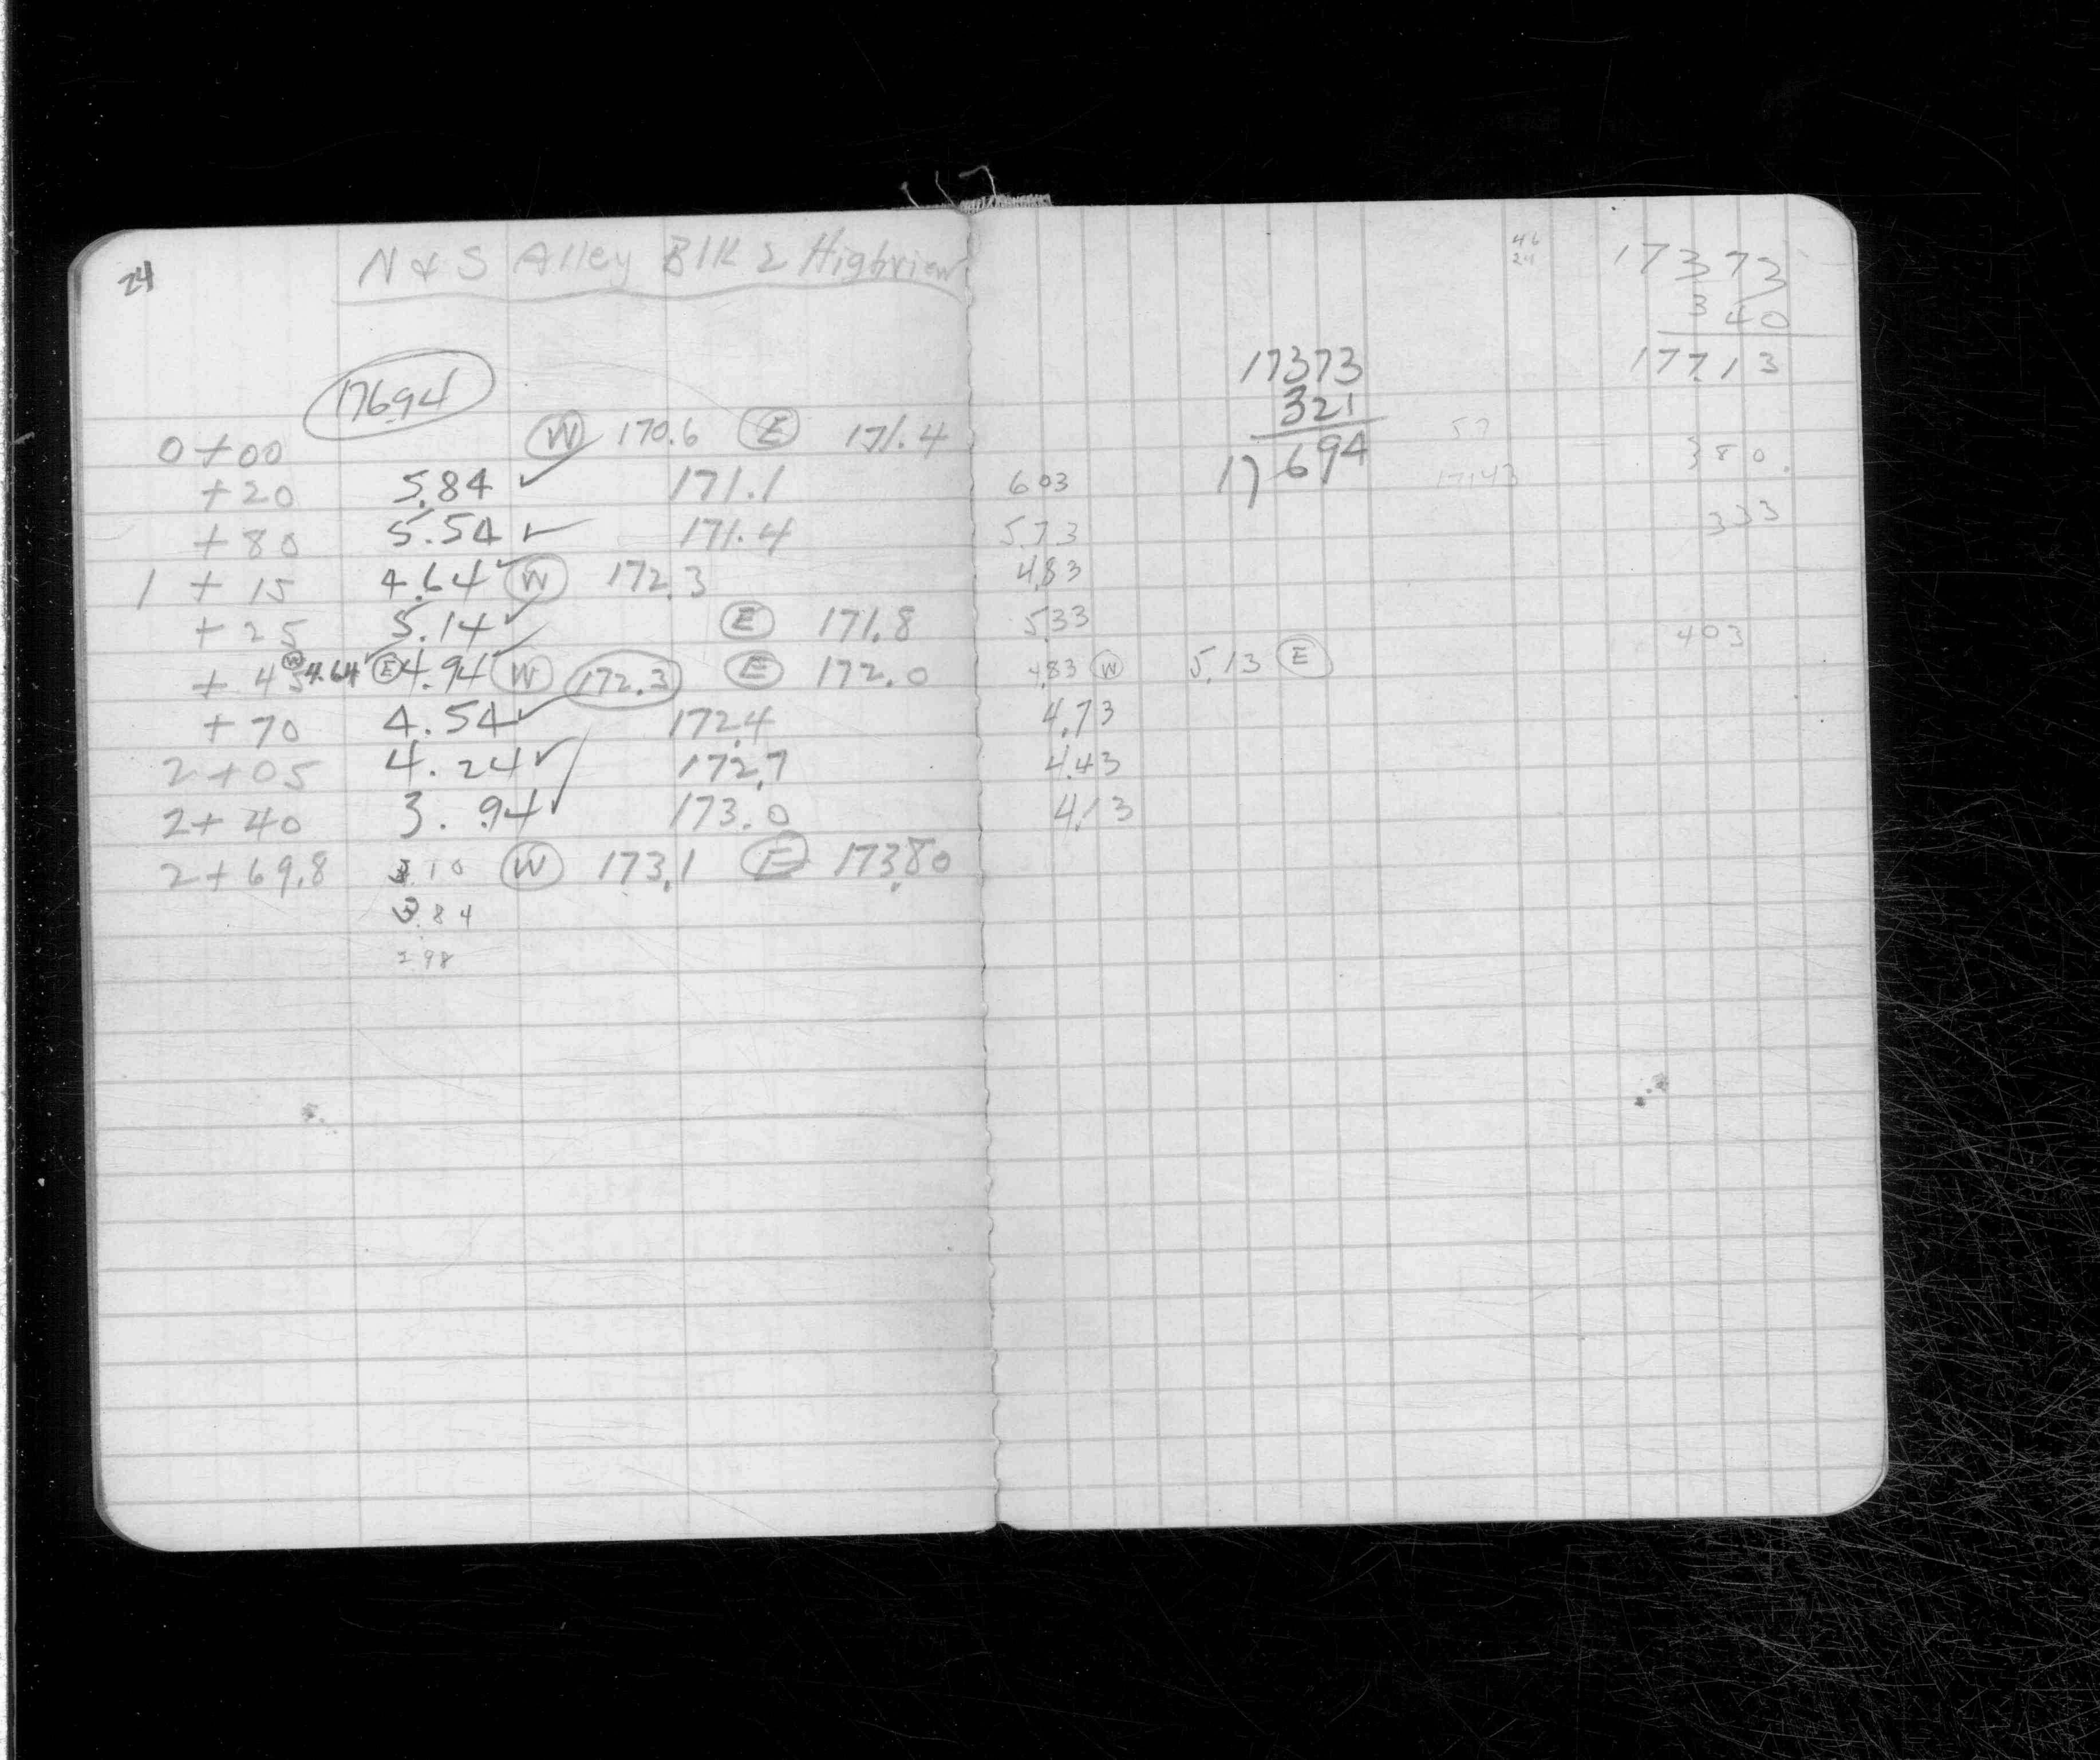 24
N & S Alley Blk 2 Highview
176.94
0+00 W 170.6 E 171.4
+20 5.84 ✓ 171.1
+80 5.54 ✓ 171.4
1 + 15 4.64 ✓ W 172.3
+25 5.14 ✓ E 171.8
+45 W 4.64 ✓ E 4.94 ✓ W 172.3 E 172.0
+70 4.54 ✓ 172.4
2+05 4.24 ✓ 172.7
2+40 3.94 ✓ 173.0
2+69.8 3.10 W 173.1 E 173.80
3.84
2 98
46
24
173 73
3 40
177.13
17373
321
17 694
57
171 43
380.
333
603
5.73
4.83
5.33
4.83 W 5.13 E
403
4.73
4.43
4.13